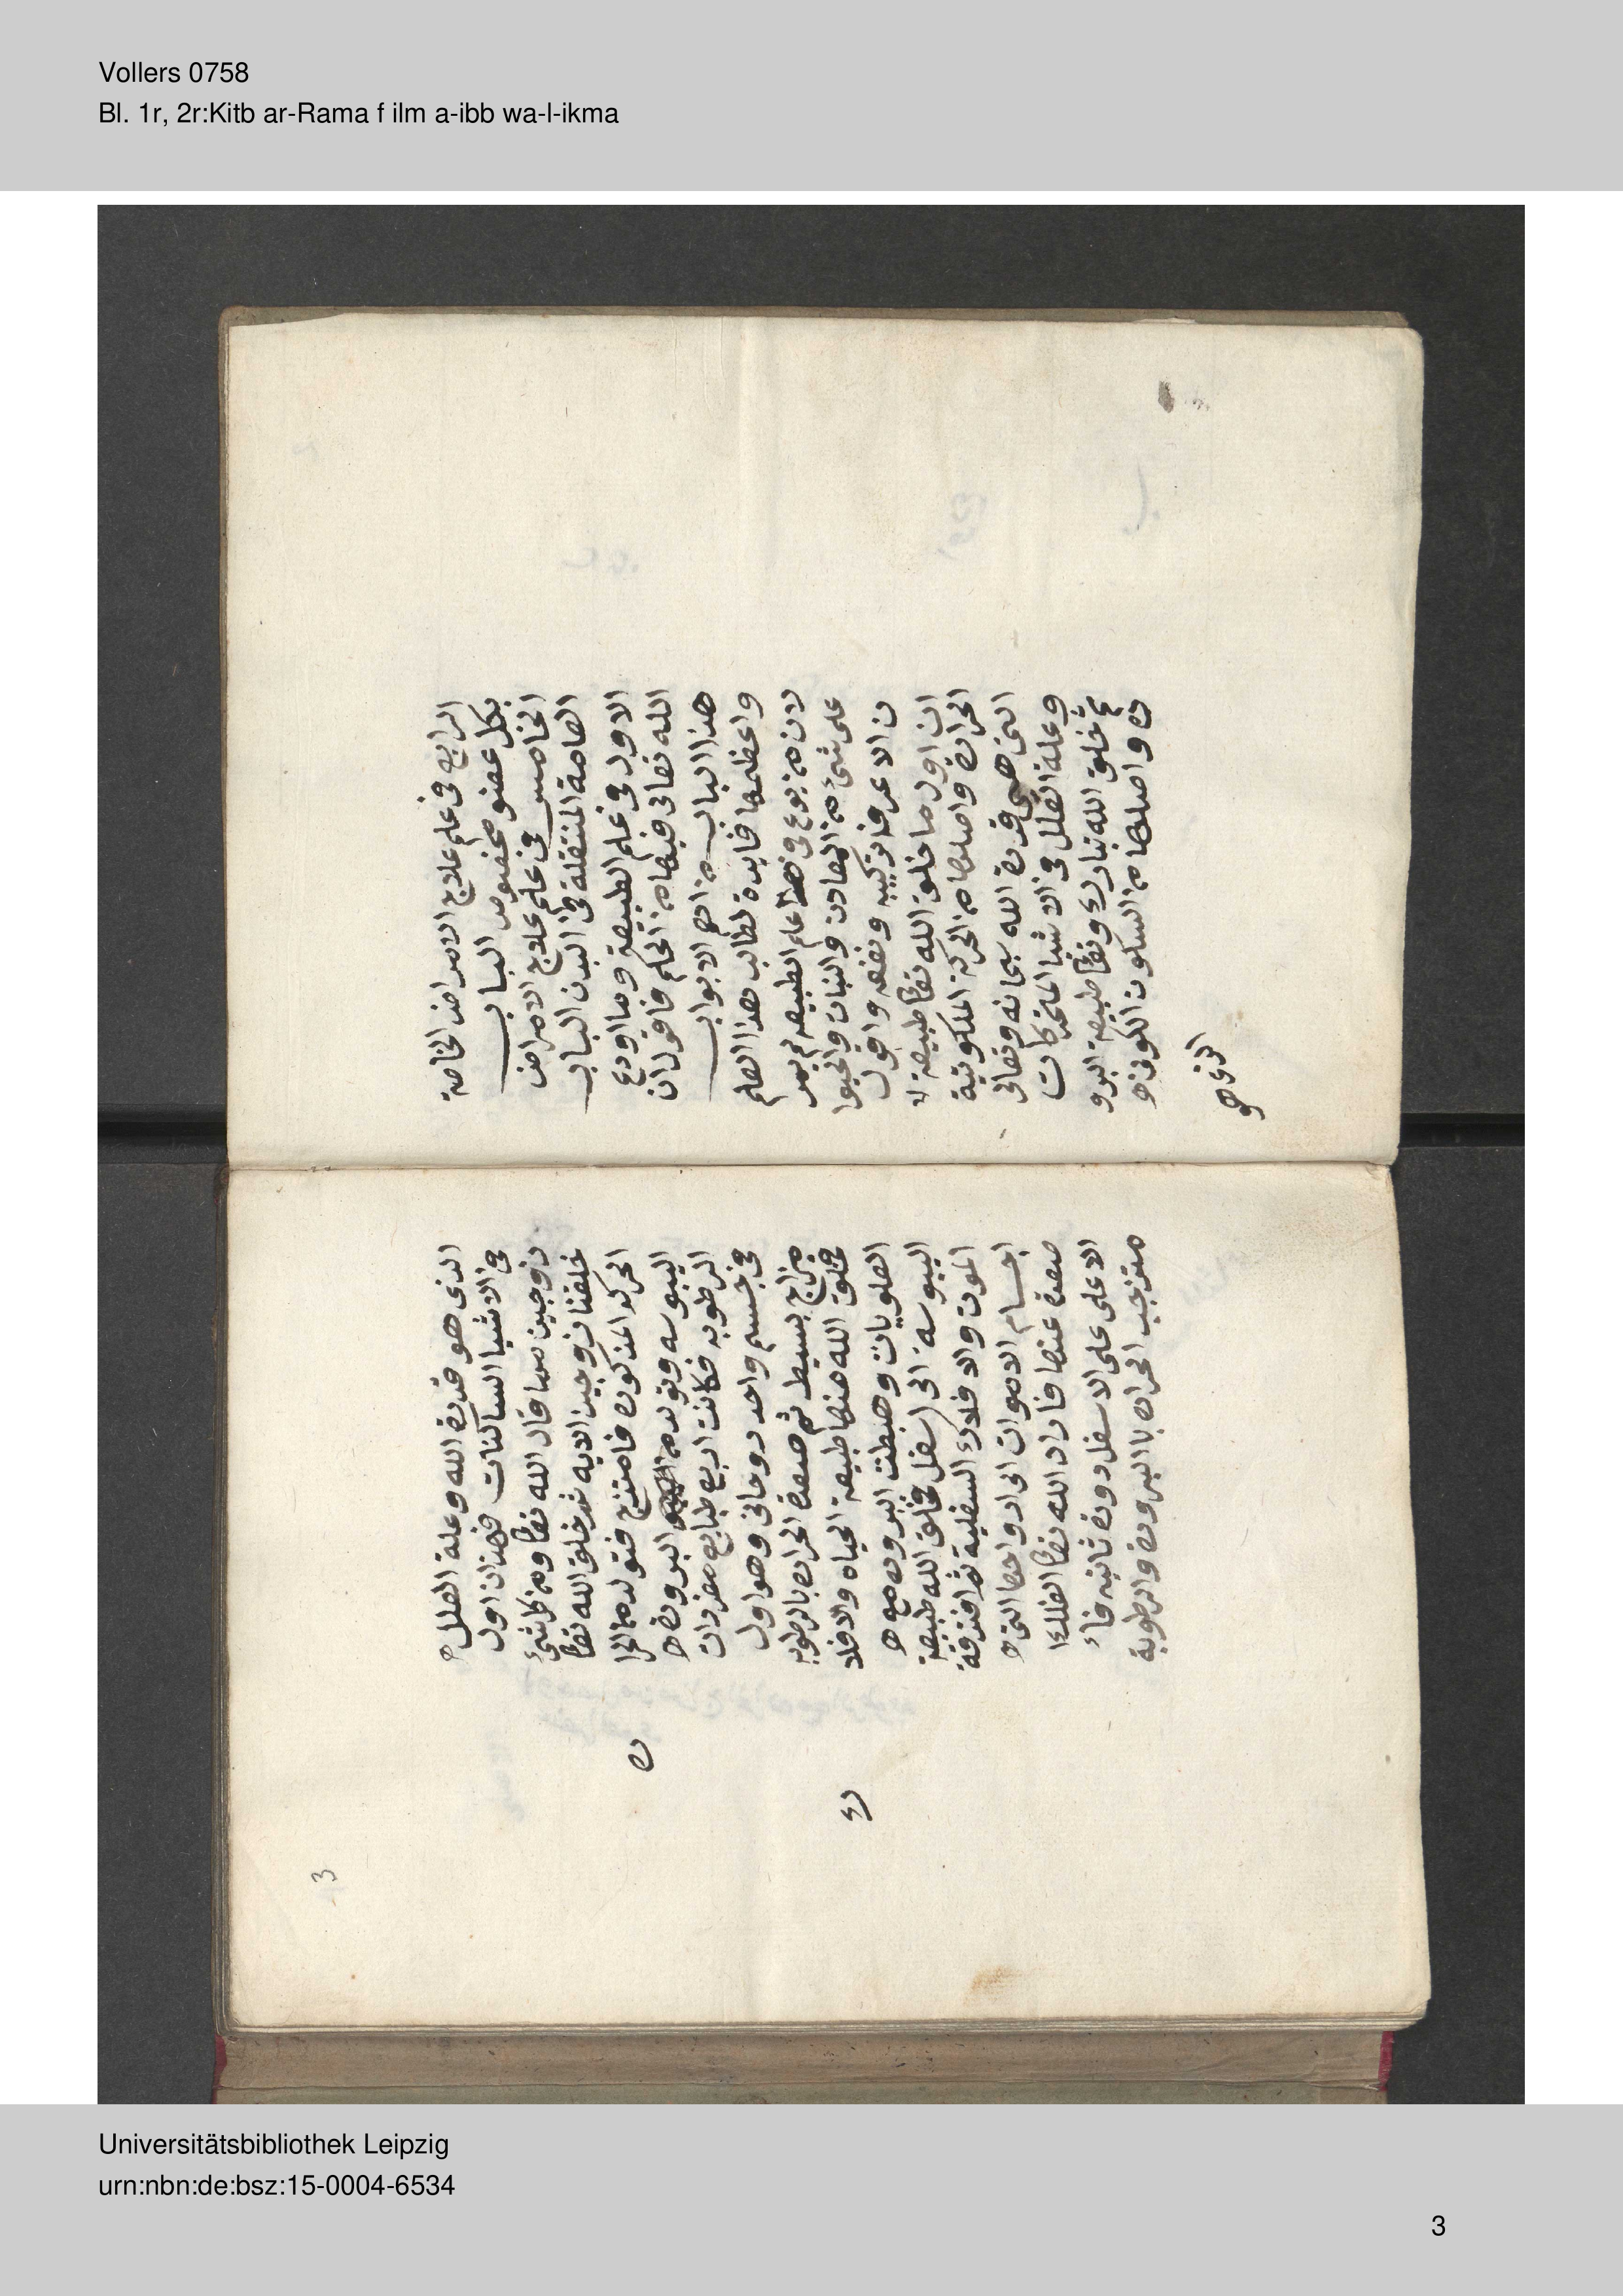 Vollers 0758
Bl. 1r, 2r:Kitb ar-Rama f ilm a-ibb wa-l-ikma
الرابع فى علم علاج الامراض الخاصة
بكل عضو مخصوص الباب
الخامس فى علم علاج الامراض
العامة المنتقلة فى البدن الباب
الاول فى علم الطبيعة وما اودع
الله تعالى فيها من الحكم فاقول ان
هذا الباب من اهم الابواب
واعظمها فايدة لطالب هذا العلم
لان من برع فى علم الطبيعه لم يمر
على شئ من المعادن والنبات والحيوا
ن الا عرف تركيبه ونفعه واقول
ان اول ما خلق الله تعا طبيعة
الحرارة واصلها من الحركة الملكوتية
التى هى قدرة الله سبحانه وتعالى
وعلة العلل فى الاشيا المتحركات
ثم خلق الله تبارك وتعا طبيعة البرو
دة واصلها من السكون الكونى
الذى هو
الذى هو قدرة الله وعلة العلل
فى الاشيا الساكنات فهذان اول
زوجين مما قال الله تعا ومن كل شئ
خلقنا زوجين الايه ثم خلق الله تعا
الحركه المذكوره فامتزج فتولد من الحرا
ره
اليبوسه وتولد من البرودة
الرطوبه فكانت اربع طبايع مفردات
فى جسم واحد روحانى وهو اول
مزاج بسيط ثم صعدة الحراره بالرطوبه
فخلق الله منها طبيعة الحياه والافلا
ك
العلويات وهبطت البروده مع
اليبوسة الى اسفل فخلق الله طبيعة
الموت والافلاك السفلية ثم افتقرة
اجسام الاموات الى ارواحها التى
صعدة عنها فاراد الله تعا الفلك
الاعلى على الاسفل دورة ثانيه فا
متزجت الحراره بالبرودة والرطوبة
3
Universitätsbibliothek Leipzig
urn:nbn:de:bsz:15-0004-6534
3